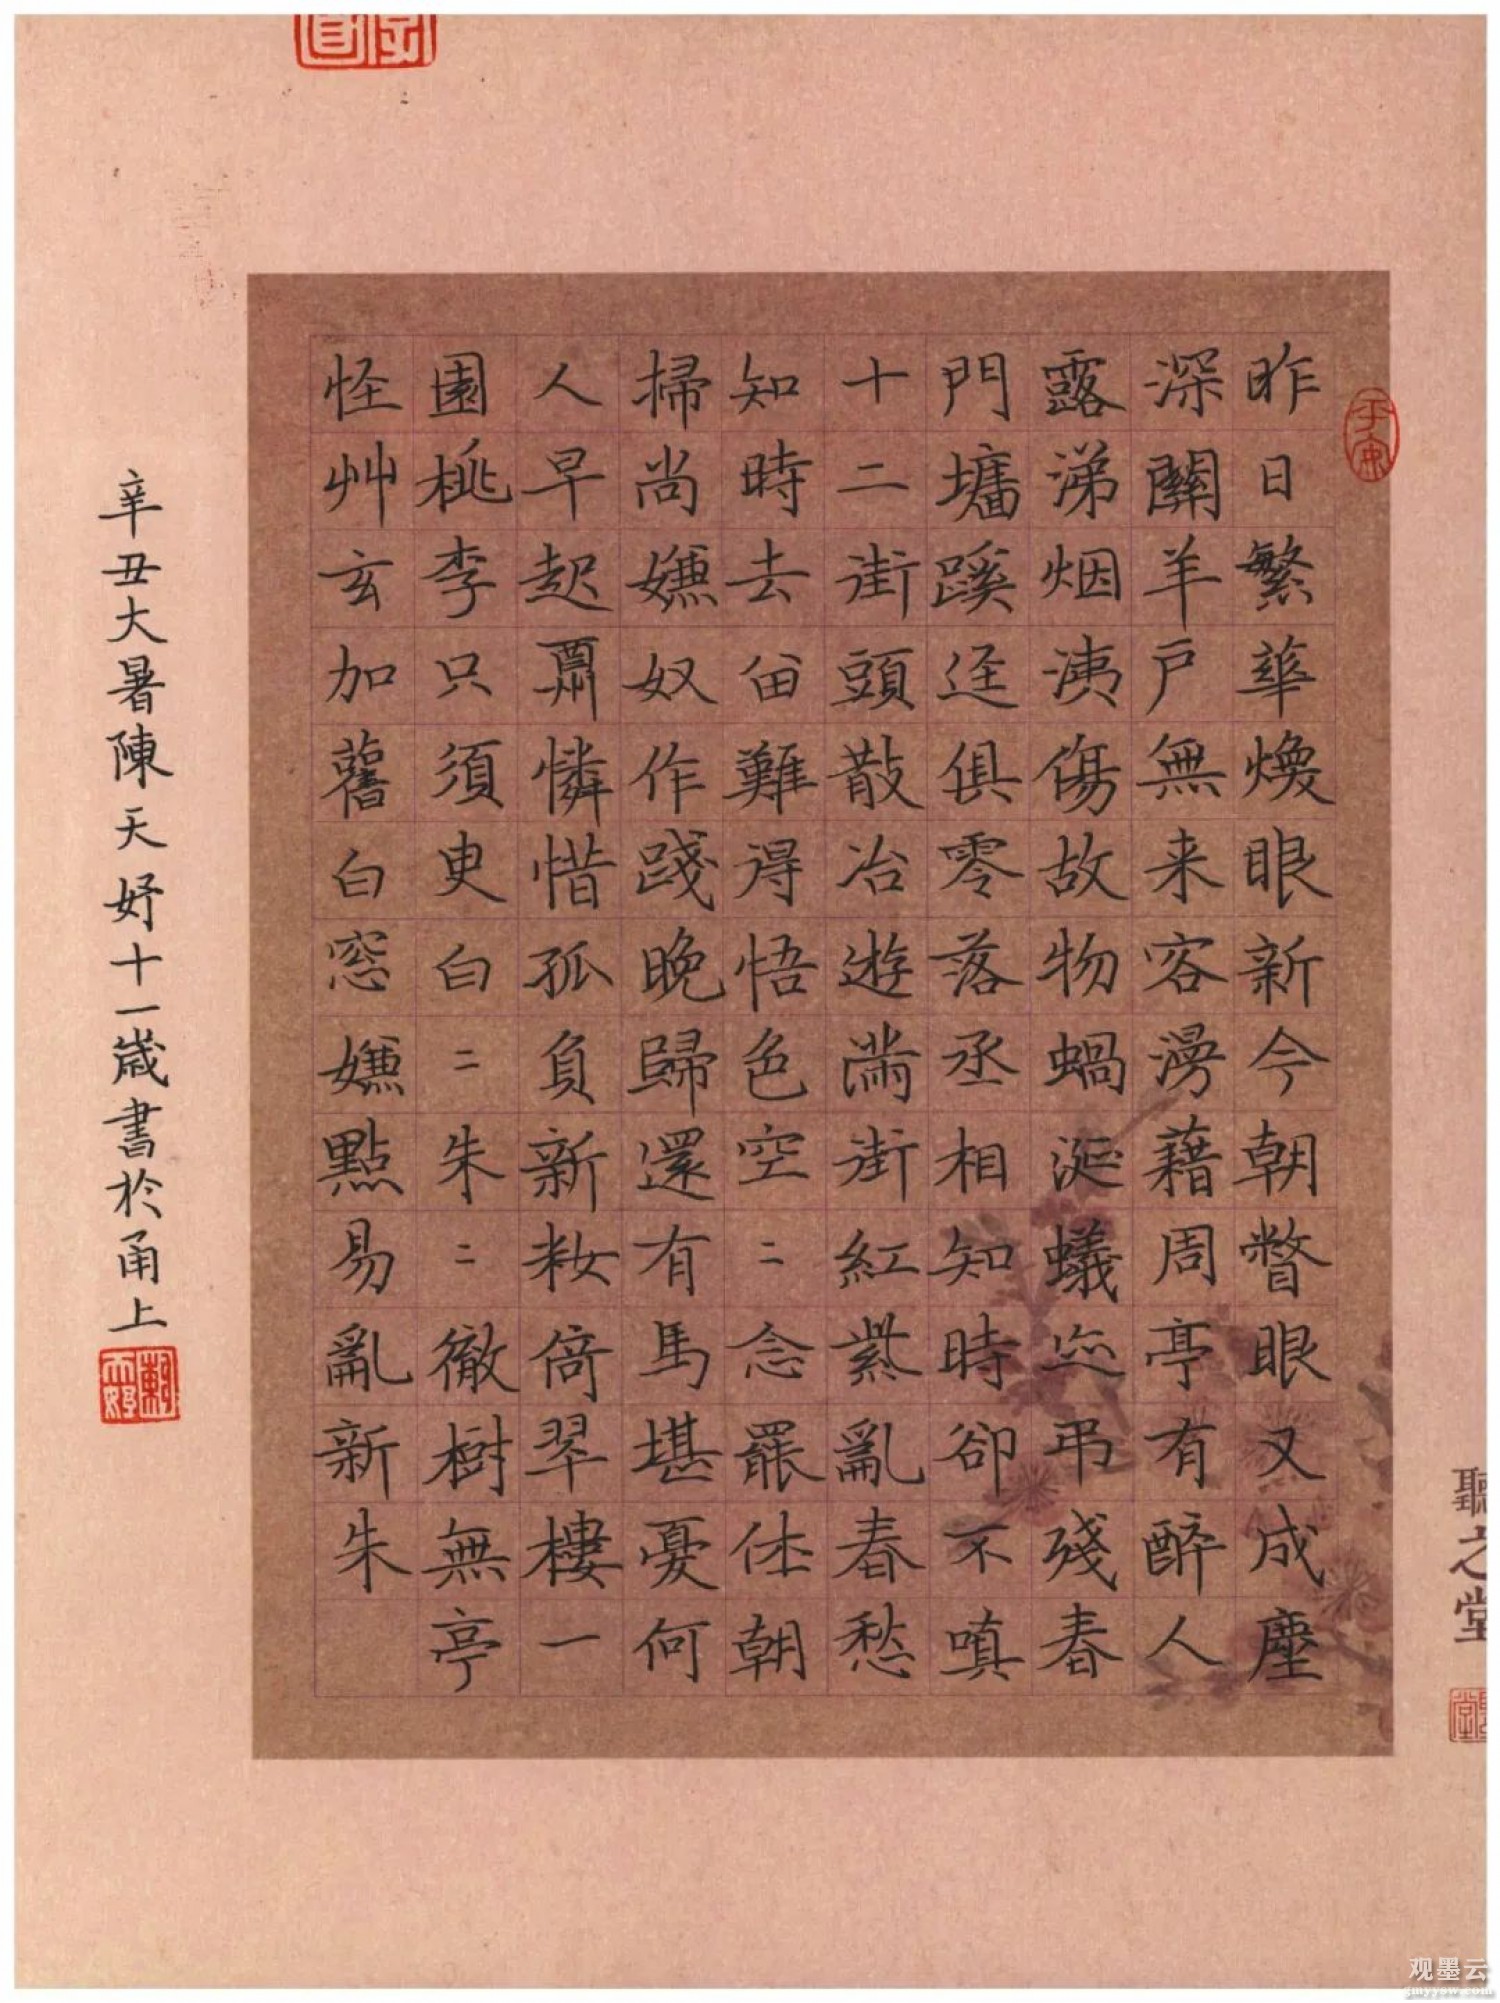 平安
昨日繁華煥眼新今朝瞥眼又成塵
深關羊戶無来容漫藉周亭有醉人
露涕烟洟傷故物蝸涎蟻迹弔殘春
門墻蹊逕俱零落丞相知時卻不嗔
十二街頭散冶遊滿街紅紫亂春愁
知時去留難得悟色空二念罷休朝
掃尚嫌奴作踐晚歸還有馬堪憂何
人早起肅憐惜孤負新妝倚翠樓一
園桃李只須臾白二朱二徹樹無亭
怪艸玄加舊白窓嫌點易亂新朱
辛丑大暑陳天妤十一歲書於甬上
聽之堂
观墨云
jmyysw.com